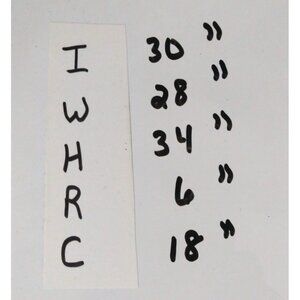 I 30 "
W 28 "
H 34 "
R 6 "
C 18 "